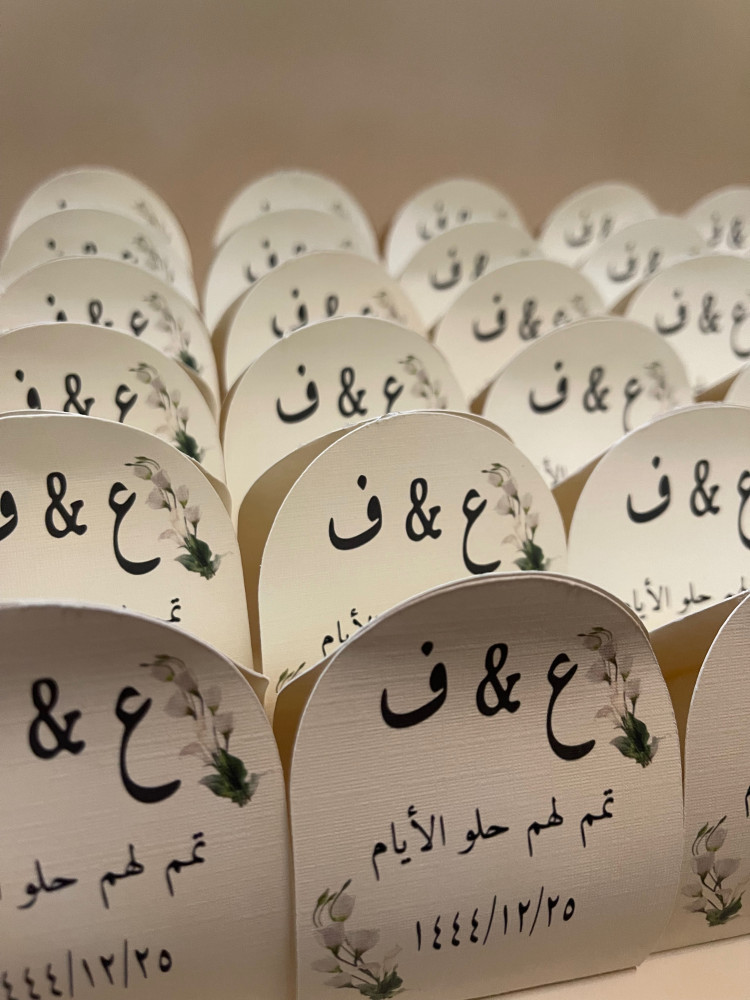 ع & ف
تمم لهم حلو الأيام
١٤٤٤/١٢/٢٥